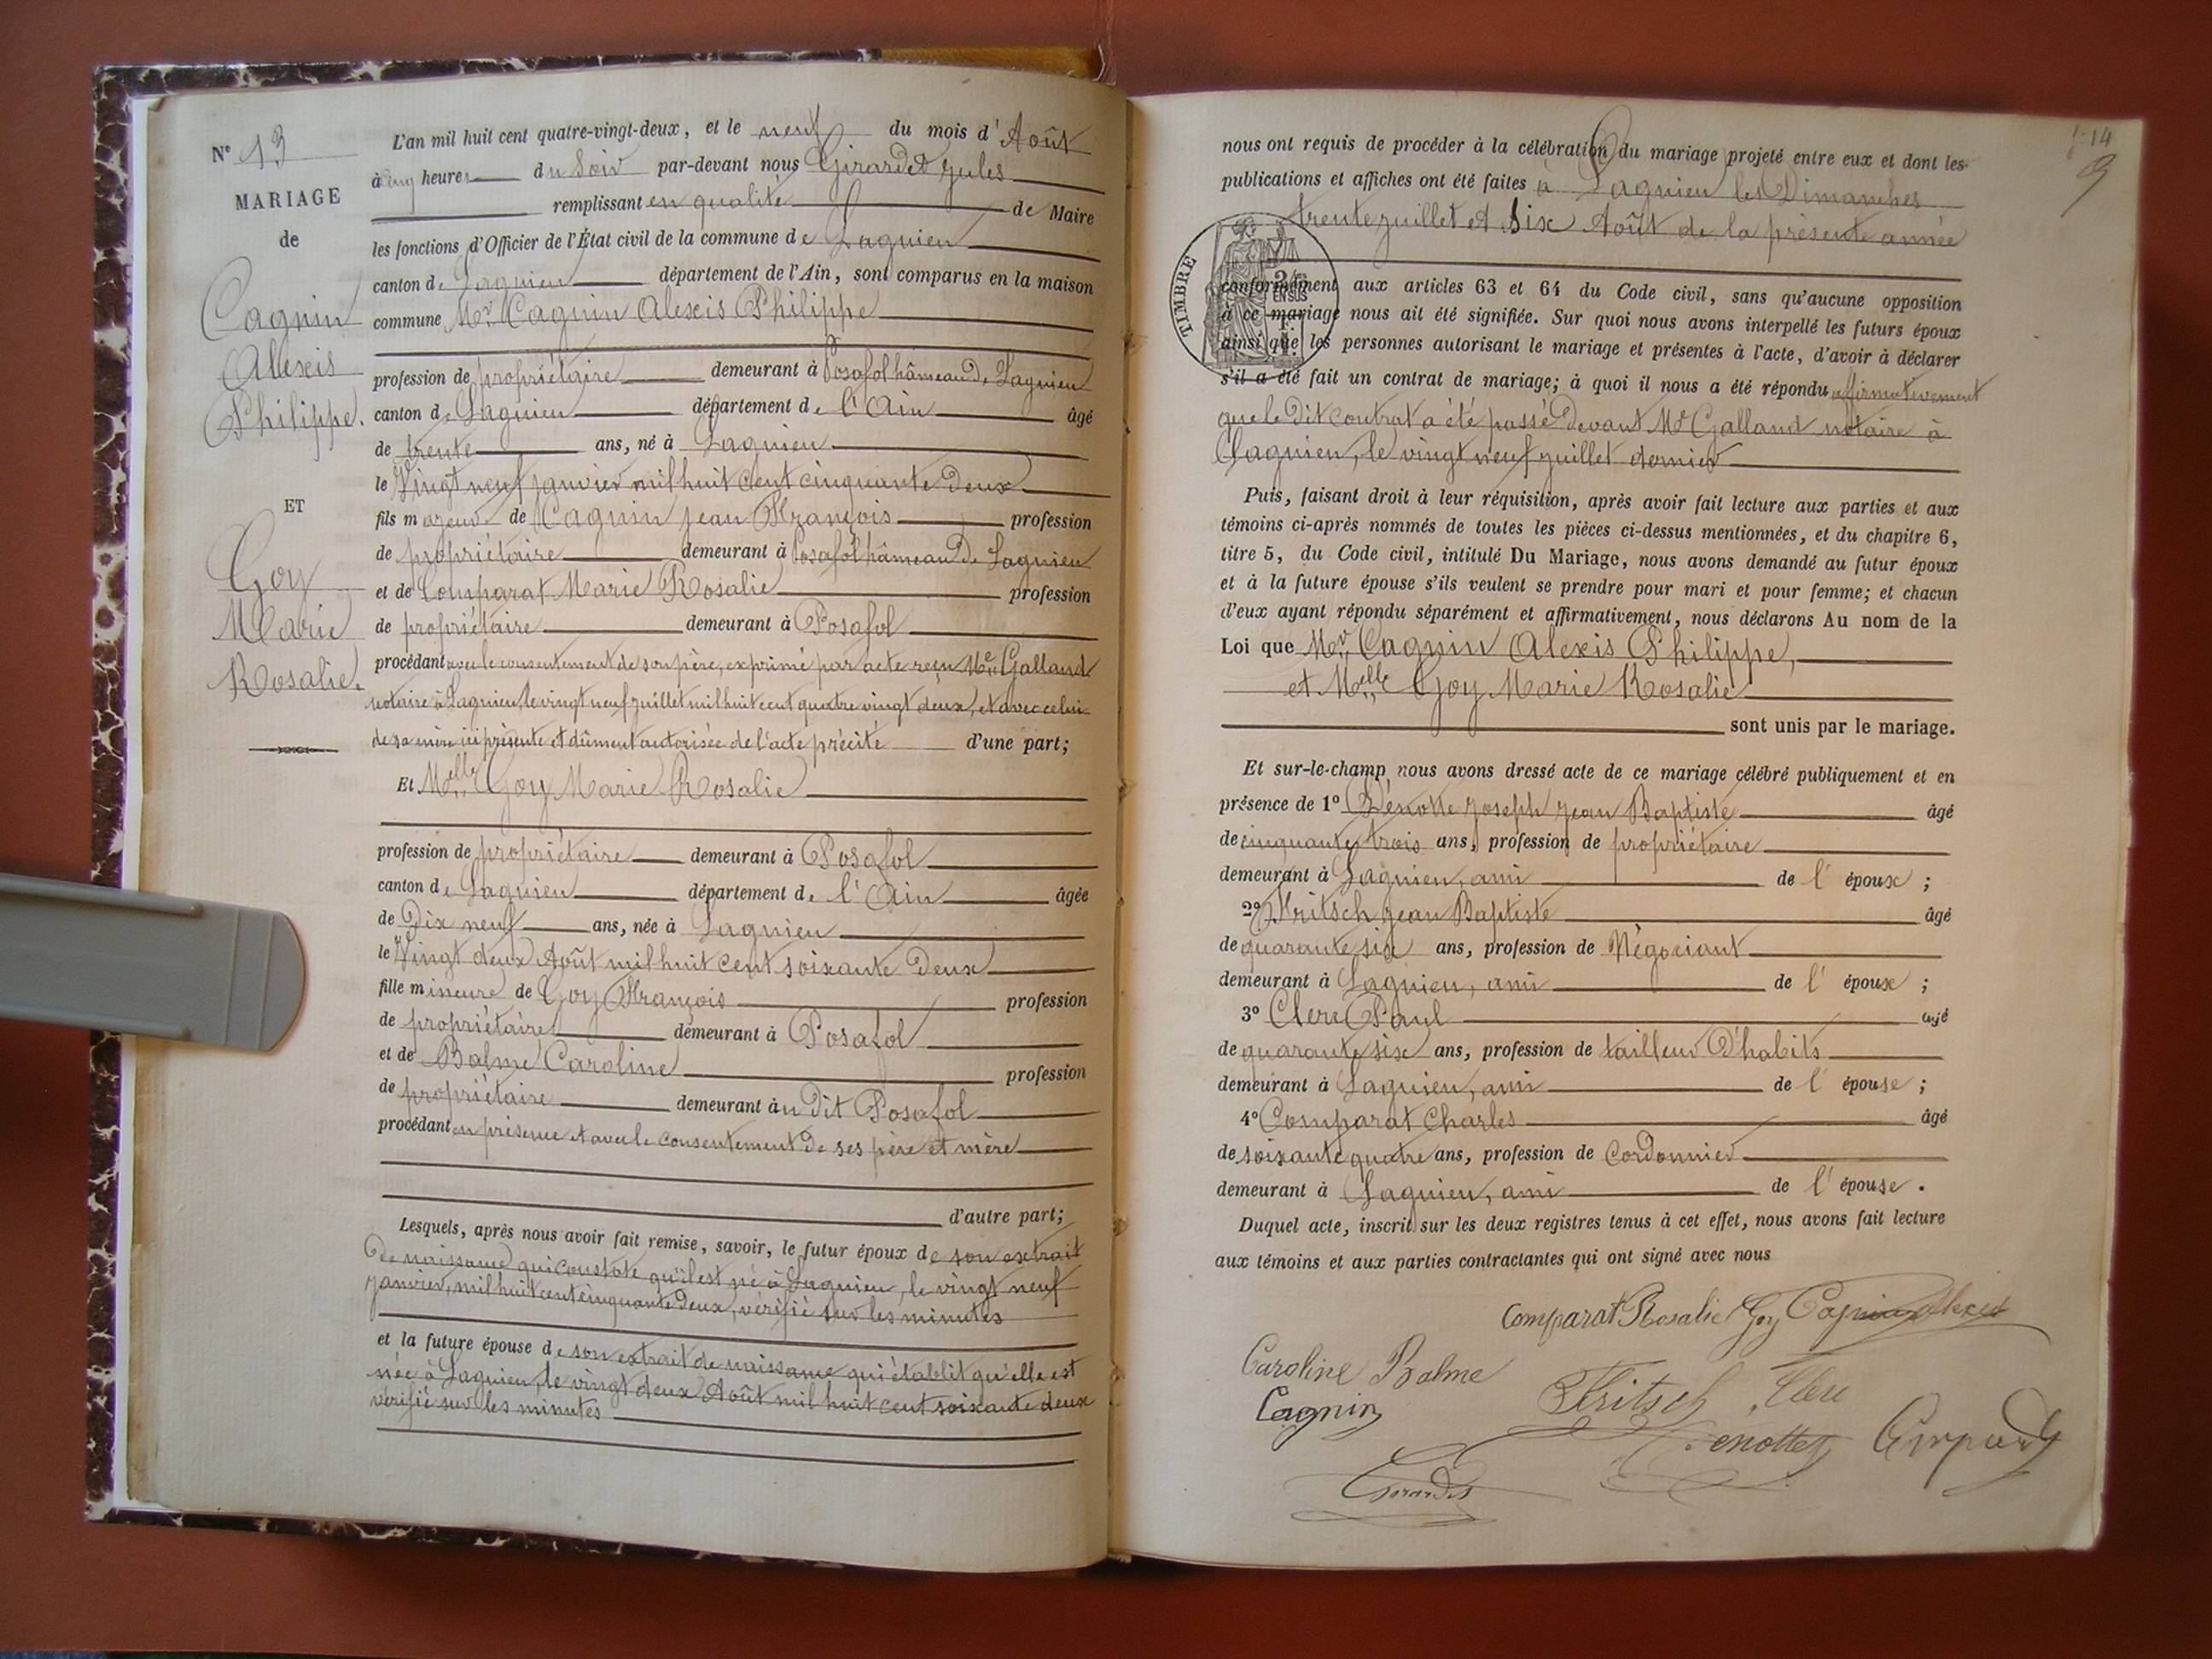 N° 13
MARIAGE
de
Cagnin
Alexis
Philippe.
ET
Goy
Marie
Rosalie.
L'an mil huit cent quatre-vingt-deux, et le neuf du mois d'Août
à cinq heures du Soir par-devant nous Girardet Jules
remplissant en qualité de Maire
les fonctions d'Officier de l'État civil de la commune de Lagnieu
canton de Lagnieu département de l'Ain, sont comparus en la maison
commune Mr. Cagnin Alexis Philippe
profession de propriétaire demeurant à Posafol hâmeau de Lagnieu
canton de Lagnieu département de l'Ain âgé
de trente ans, né à Lagnieu
le Vingt neuf janvier mil huit cent cinquante deux
fils majeur de Cagnin Jean François profession
de propriétaire demeurant à Posafol hâmeau de Lagnieu
et de Comparat Marie Rosalie profession
de propriétaire demeurant à Posafol
procédant avec le consentement de son père, exprimé par acte reçu Me Galland
notaire à Lagnieu, le vingt neuf juillet mil huit cent quatre vingt deux, et avec celui
de sa mère ici présente et dûment autorisée de l'acte précité d'une part;
Et Melle Goy Marie Rosalie
profession de propriétaire demeurant à Posafol
canton de Lagnieu département de l'Ain âgée
de Dix neuf ans, née à Lagnieu
le Vingt deux Août mil huit cent soixante Deux
fille mineure de Goy François profession
de propriétaire demeurant à Posafol
et de Balme Caroline profession
de propriétaire demeurant àu dit Posafol
procédant en présence et avec le consentement de ses père et mère
d'autre part;
Lesquels, après nous avoir fait remise, savoir, le futur époux de son extrait
de naissance qui constate qu'il est né à Lagnieu, le vingt neuf
janvier, mil huit cent cinquante Deux, vérifié sur les minutes
et la future épouse de son extrait de naissance qui établit qu'elle est
née à Lagnieu, le vingt deux Août mil huit cent soixante deux
vérifié sur les minutes
f. 14
9
nous ont requis de procéder à la célébration du mariage projeté entre eux et dont les
publications et affiches ont été faites à Lagnieu les Dimanches
trente juillet et Six Août de la présente année
TIMBRE
EN SUS
conformément aux articles 63 et 64 du Code civil, sans qu'aucune opposition
à ce mariage nous ait été signifiée. Sur quoi nous avons interpellé les futurs époux
ainsi que les personnes autorisant le mariage et présentes à l'acte, d'avoir à déclarer
s'il a été fait un contrat de mariage; à quoi il nous a été répondu affirmativement
que le dit contrat a été passé Devant Me Galland notaire à
Lagnieu, le vingt neuf juillet dernier
Puis, faisant droit à leur réquisition, après avoir fait lecture aux parties et aux
témoins ci-après nommés de toutes les pièces ci-dessus mentionnées, et du chapitre 6,
titre 5, du Code civil, intitulé Du Mariage, nous avons demandé au futur époux
et à la future épouse s'ils veulent se prendre pour mari et pour femme; et chacun
d'eux ayant répondu séparément et affirmativement, nous déclarons Au nom de la
Loi que Mr. Cagnin Alexis Philippe,
et Melle Goy Marie Rosalie
sont unis par le mariage.
Et sur-le-champ nous avons dressé acte de ce mariage célébré publiquement et en
présence de 1° Dénotte Joseph Jean Baptiste âgé
de cinquante trois ans, profession de propriétaire
demeurant à Lagnieu, ami de l'époux ;
2° Fritsch Jean Baptiste âgé
de quarante six ans, profession de Négociant
demeurant à Lagnieu, ami de l'époux ;
3° Clerc Paul âgé
de quarante six ans, profession de tailleur D'habits
demeurant à Lagnieu, ami de l'épouse ;
4° Comparat Charles âgé
de soixante quatre ans, profession de Cordonnier
demeurant à Lagnieu, ami de l'épouse.
Duquel acte, inscrit sur les deux registres tenus à cet effet, nous avons fait lecture
aux témoins et aux parties contractantes qui ont signé avec nous
Comparat Rosalie Goy Cagnin Alexis
Caroline Balme Fritsch Clerc
Cagnin Denotte
Girardet